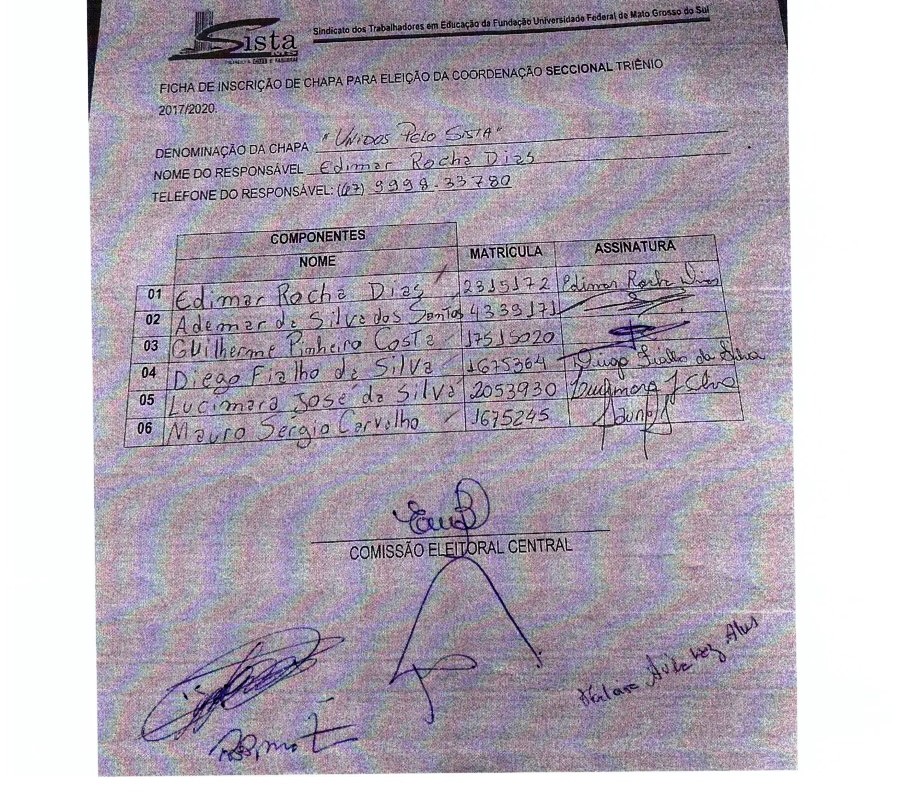 Sista
Sindicato dos Trabalhadores em Educação da Fundação Universidade Federal de Mato Grosso do Sul
FICHA DE INSCRIÇÃO DE CHAPA PARA ELEIÇÃO DA COORDENAÇÃO SECCIONAL TRIÊNIO
2017/2020.
DENOMINAÇÃO DA CHAPA "UNIDOS PELO SISTA"
NOME DO RESPONSÁVEL Edimar Rocha Dias
TELEFONE DO RESPONSÁVEL: (67) 9998-33780
COMPONENTES
NOME MATRÍCULA ASSINATURA
01 Edimar Rocha Dias 2315172 Edimar Rocha Dias
02 Ademar da Silva dos Santos 4339171
03 Guilherme Pinheiro Costa 17515020
04 Diego Fialho da Silva 1675364 Diego Fialho da Silva
05 Lucimara José da Silva 2053930 Lucimara J Silva
06 Mauro Sérgio Carvalho 1675245
COMISSÃO ELEITORAL CENTRAL